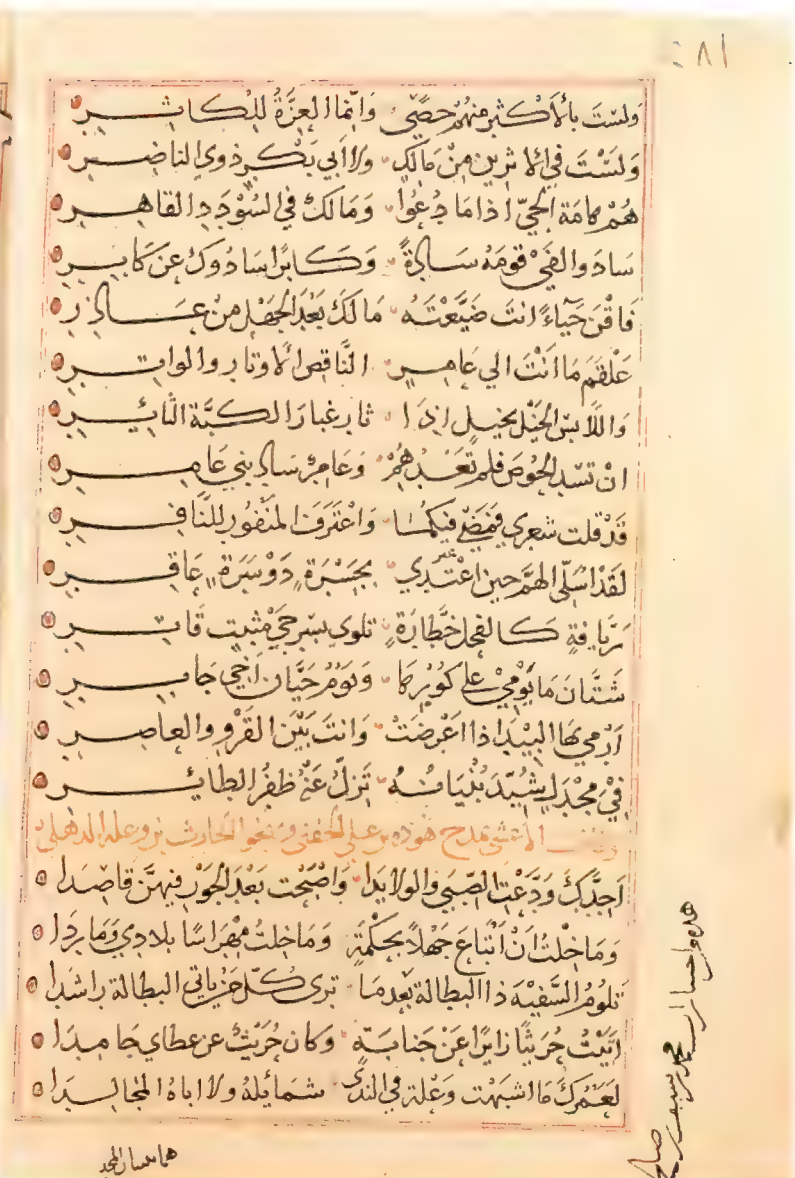 ٤٨١
ولست بالاكثر منهم حصى وانما العزة للكاثر
ولست في الاثرين من مالك ولا ابي بكر ذوي الناضر
هم هامة الحي اذا ما دعوا ومالك في السودد القاهر
ساد والفى قومه سادة وكابرا سادوك عن كابر
فاقن حياء انت ضيعته مالك بعد الجهل من عاذر
علقم ما انت الى عامر الناقض الاوتار والواتر
واللابس الخيل بخيل اذا ثار غبار الكبة الثائر
ان تسد الحوص فلم تعدهم وعامر ساد بني عامر
قد قلت شعري فمضى فيكما واعترف المنفور للنافر
لقد اسلي الهم حين اعتري بجسرة دوسرة عاقر
زيافة كالفحل خطارة تلوي بشرخي ميت قاتر
شتان ما يومي على كورها ويوم حيان اخي جابر
ارمي بها البيدا اذا اعرضت وانت بين القرو والعاصر
في مجدل شيد بنيانه تزل عنه ظفر الطائر
الاعشى يمدح هوذه بن علي الحنفي ويهجو الحارث بن وعله
اجدك ودعت الصبى والولايدا واصبحت بعد الجور فيهن قاصدا
وما خلت ان ابتاع جهلا بحكمة وما خلت مهراسا بلادي وماردا
تلوم السفيه ذا البطالة بعدما ترى كل ما ياتي البطالة راشدا
اتيت حريثا زايرا عن جنابة وكان حريث عن عطاي جامدا
لعمرك ما اشبهت وعلة في الندى شمائله ولا اباه المجالدا